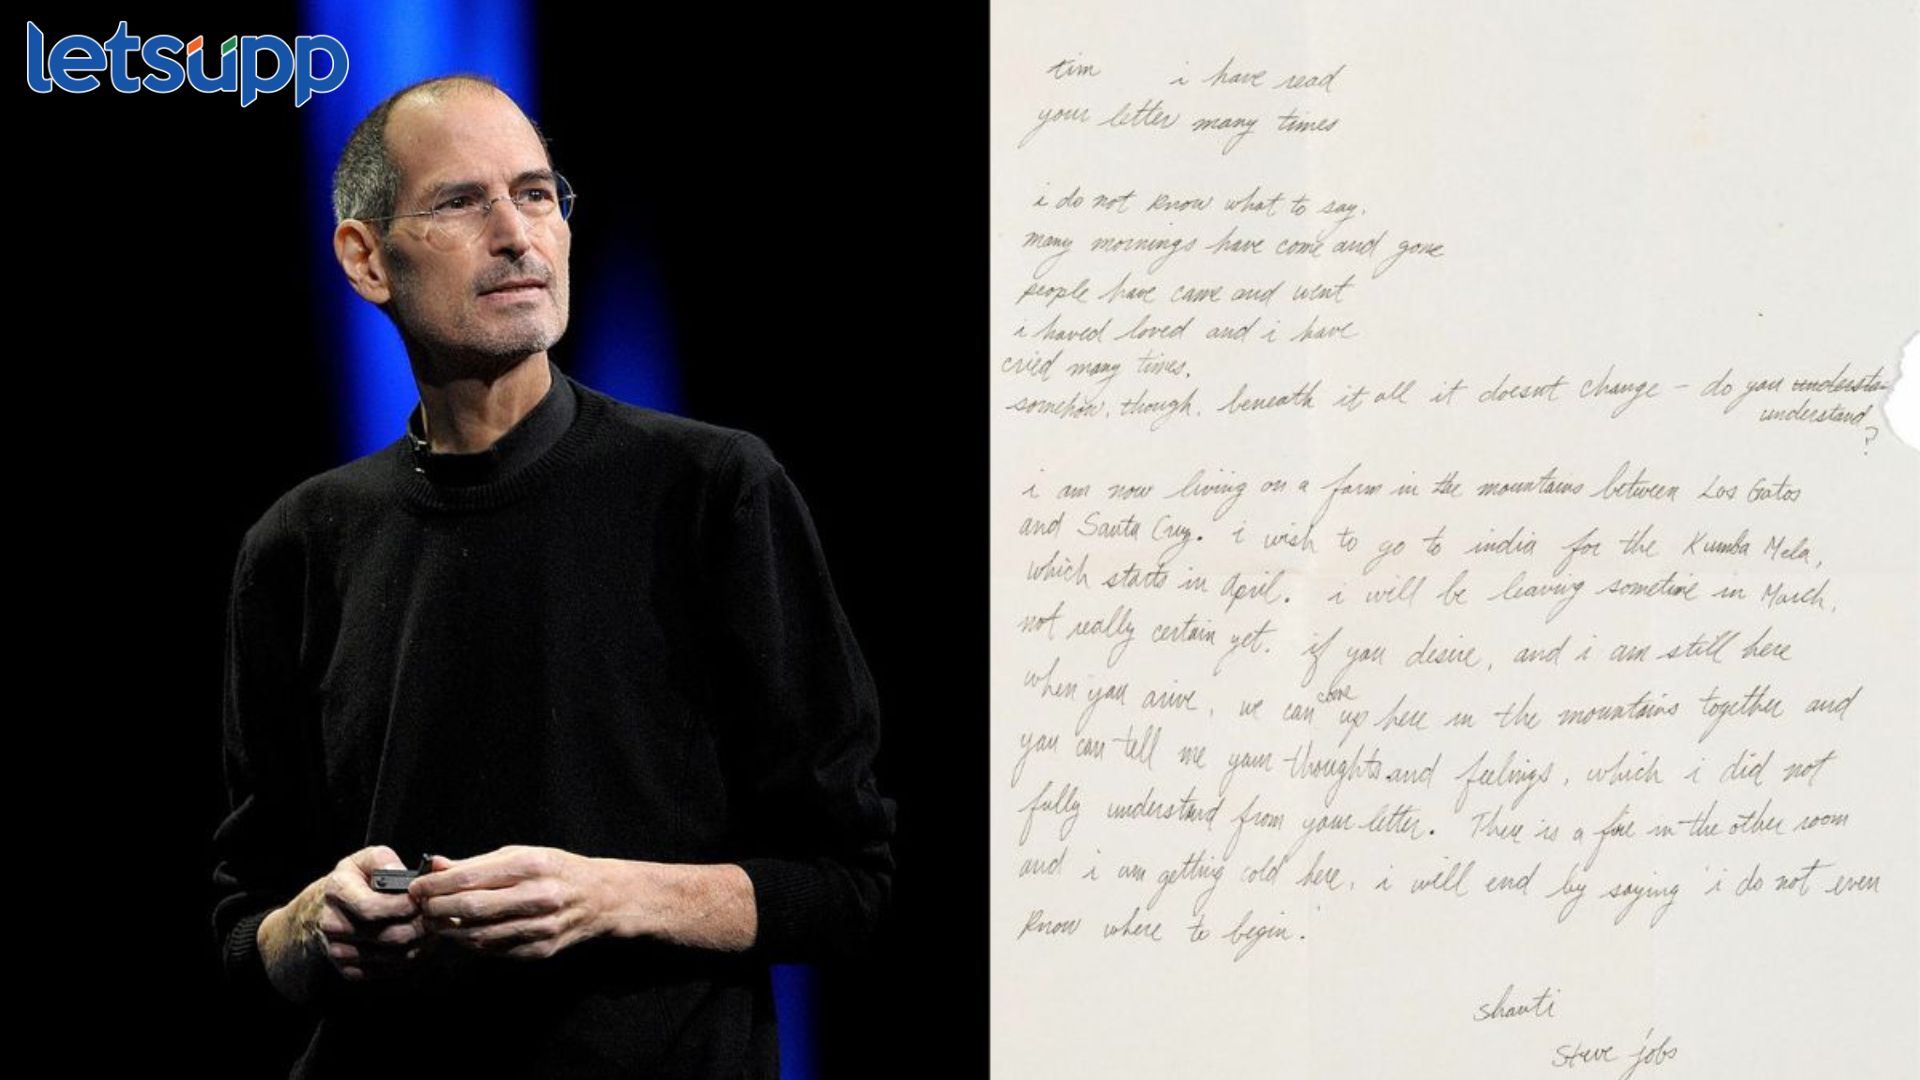 letsupp
tim i have read
your letter many times
i do not know what to say.
many mornings have come and gone
people have came and went
i haved loved and i have
cried many times.
somehow, though, beneath it all it doesnt change - do you understa
understand
?
i am now living on a farm in the mountains between Los Gatos
and Santa Cruz. i wish to go to india for the Kumba Mela,
which starts in April. i will be leaving sometime in March,
not really certain yet. if you desire, and i am still here
when you arive, we can come up here in the mountains together and
you can tell me your thoughts and feelings, which i did not
fully understand from your letter. There is a fire in the other room
and i am getting cold here. i will end by saying 'i do not even
know where to begin.'
shanti
steve jobs